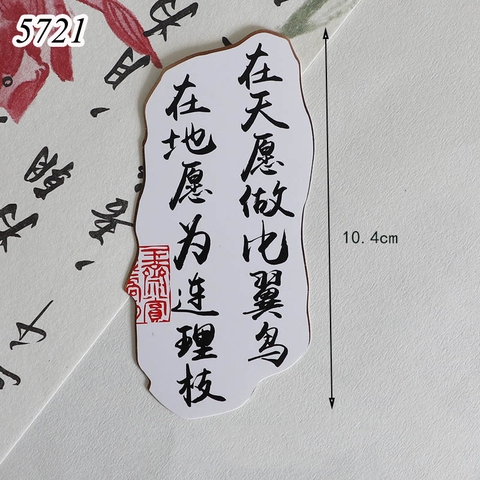 5721
在天愿做比翼鸟
在地愿为连理枝
10.4cm